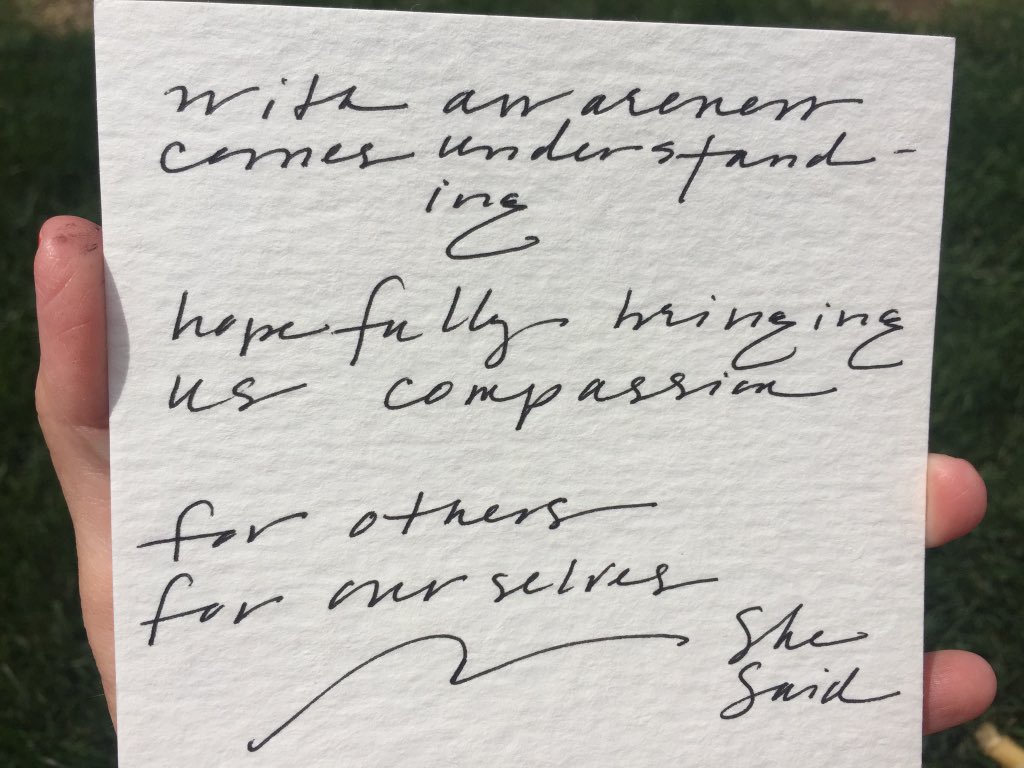 with awareness
comes understand-
ing
hopefully bringing
us compassion
for others
for ourselves
She
Said